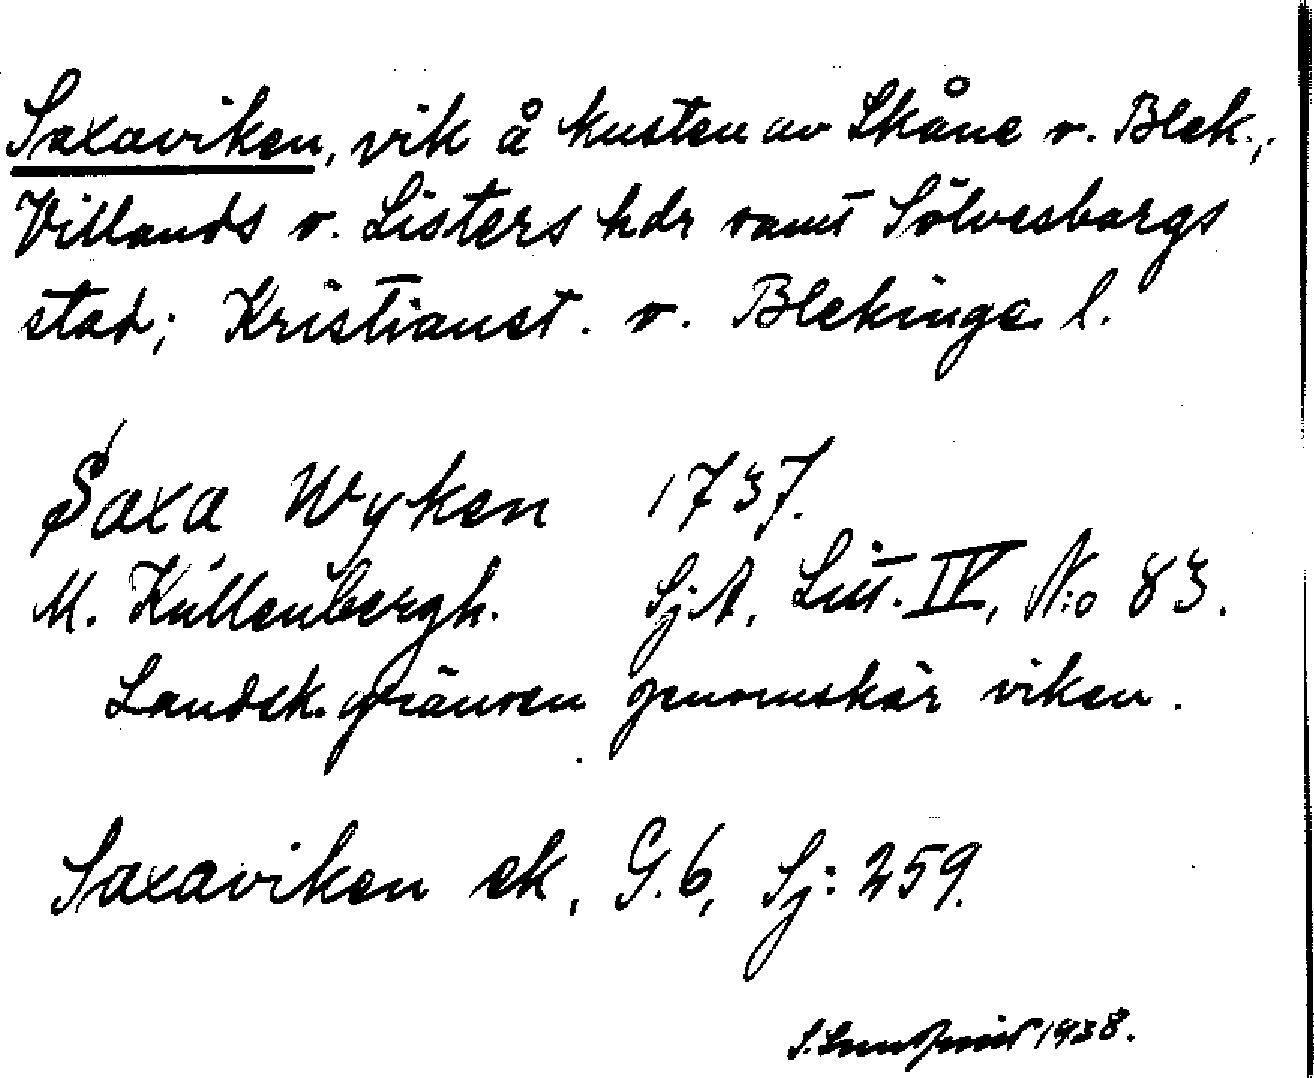 Saxaviken, vik å kusten av Skåne o. Blek.,
Villands o. Listers hdr samt Sölvesborgs
stad; Kristianst. o. Blekinge l.
Saxa Wyken 1737.
M. Küllenbergh. Sj.A. Litt. IV, N:o 83.
Landsk. gränsen genomskär viken.
Saxaviken ek, G.6, Sj: 259.
1938.